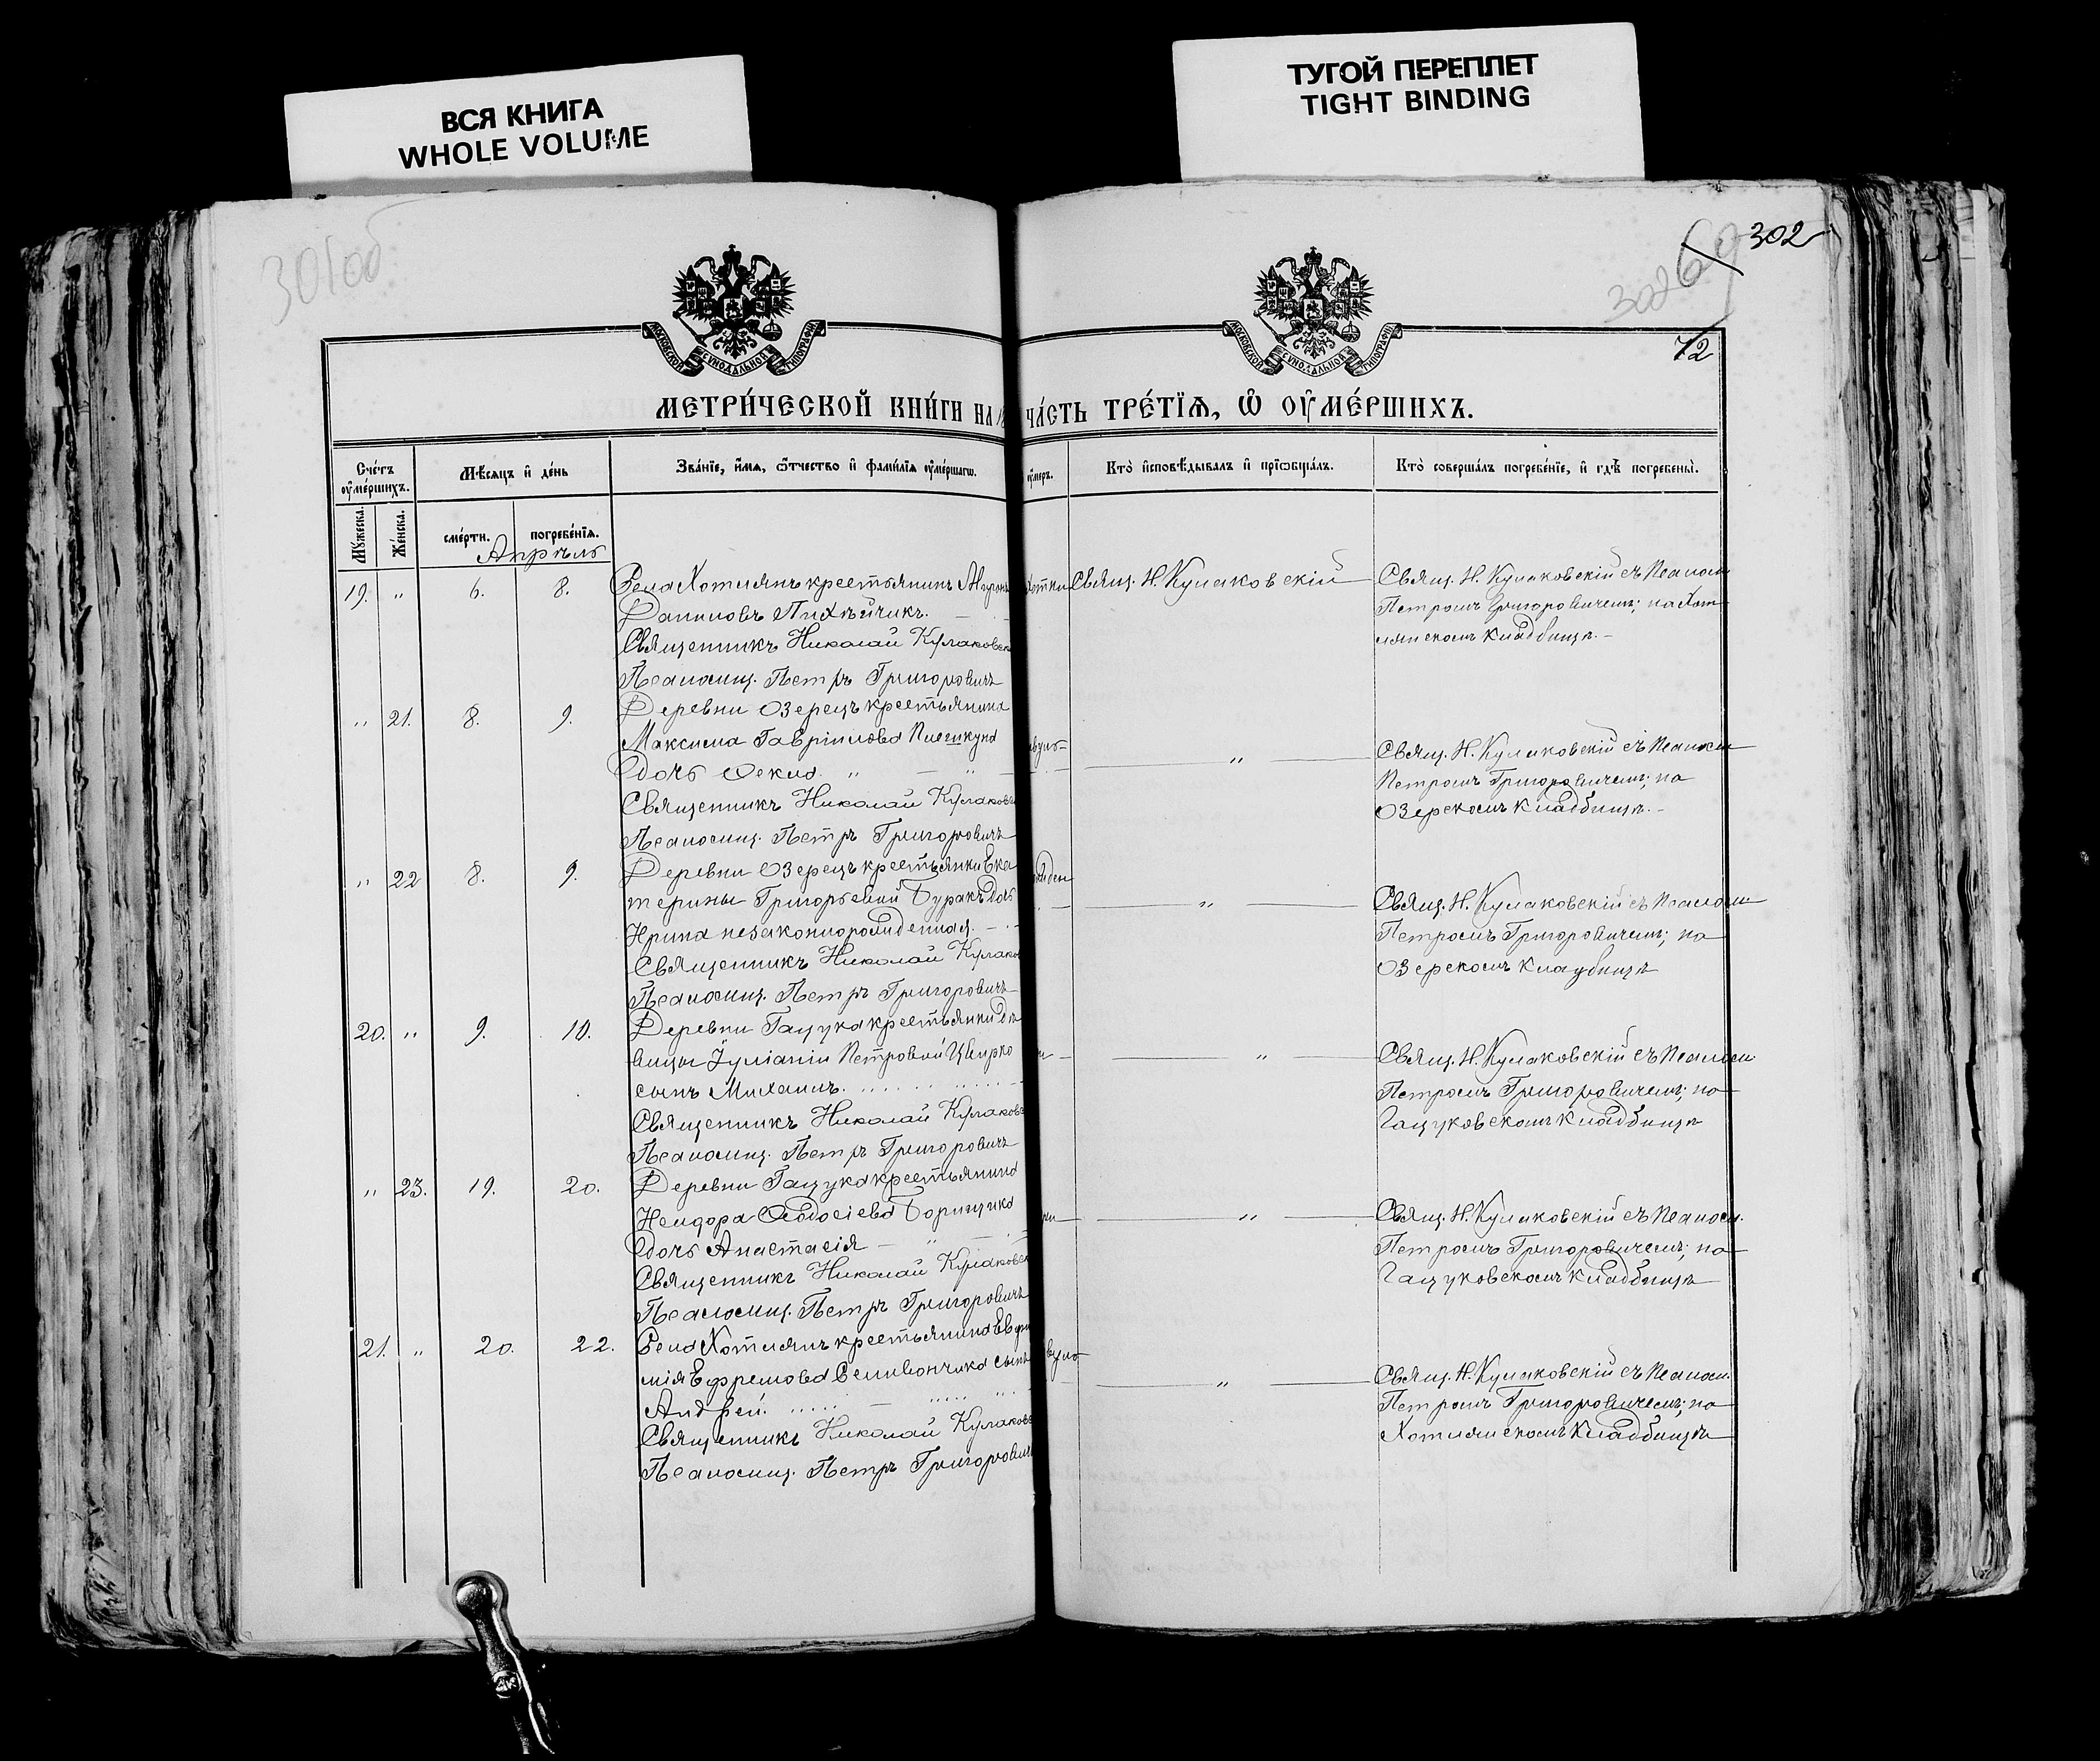 ВСЯ КНИГА
WHOLE VOLUME
ТУГОЙ ПЕРЕПЛЕТ
TIGHT BINDING
301об
302
69
302
72
МОСКОВСКОЙ СѴНОДАЛЬНОЙ ТИПОГРАФІИ
МОСКОВСКОЙ СѴНОДАЛЬНОЙ ТИПОГРАФІИ
МЕТРИ́ЧЕСКОЙ КНИ́ГИ НА
ЧА́СТЬ ТРЕ́ТЇѦ, Ѡ҆ ОУ҆МЕ́РШИХЪ.
Сче́тъ оу҆ме́ршихъ.
Мѣ́сяцъ и҆ де́нь
Зва́нїе, и҆́мя, ѻ҆́тчество и҆ фами́лїя оу҆ме́ршагѡ.
оу҆меръ.
Кто̀ и҆сповѣ́дывалъ и҆ прїѡбща́лъ.
Кто̀ соверша́лъ погребе́нїе, и҆ гдѣ̀ погребены̀.
Мꙋ́жеска.
Же́нска.
сме́рти.
погребе́нїя.
Апрѣль
19. " 6. 8.
Села Хотлянъ крестьянинъ
Даниловъ Пихтѣйчикъ.
Священникъ Николай Кулаковск
Псаломщ. Петръ Григоровичъ
Свящ. Н. Кулаковскій
Свящ. Н. Кулаковскій съ Псалом
Петромъ Григоровичемъ; на Хот-
лянскомъ кладбищѣ.
" 21. 8. 9.
Деревни Озерецъ крестьянина
Максима Гавріилова
дочь Фекла. "
Священникъ Николай Кулаковс
Псаломщ. Петръ Григоровичъ
"
Свящ. Н. Кулаковскій съ Псалом
Петромъ Григоровичемъ; на
Озерскомъ кладбищѣ.
" 22 8. 9.
Деревни Озерецъ крестьянки Ека
терины Григорьевой Буракъ дочь
Ирина незаконнорожденная.
Священникъ Николай Кулаков
Псаломщ. Петръ Григоровичъ
"
Свящ. Н. Кулаковскій съ Псалом
Петромъ Григоровичемъ; на
Озерскомъ кладбищѣ
20. " 9. 10.
Деревни Гацука крестьянки дѣ
вицы Іуліаніи Петровой Цвирко
сынъ Михаилъ.
Священникъ Николай Кулаков
Псаломщ. Петръ Григоровичъ
"
Свящ. Н. Кулаковскій съ Псалом
Петромъ Григоровичемъ; на
Гацуковскомъ кладбищѣ
" 23. 19. 20.
Деревни Гацука крестьянина
Исидора Ѳеодосіева Борищика
дочь Анастасія "
Священникъ Николай Кулаковск
Псаломщ. Петръ Григоровичъ
"
Свящ. Н. Кулаковскій съ Псалом.
Петромъ Григоровичемъ; на
Гацуковскомъ кладбищѣ
21. " 20. 22.
Села Хотлянъ крестьянина Евфи
мія Ефремова Селивончика сынъ
Андрей.
Священникъ Николай Кулаковс
Псаломщ. Петръ Григорович
"
Свящ. Н. Кулаковскій съ Псалом.
Петромъ Григоровичемъ; на
Хотлянскомъ кладбищѣ